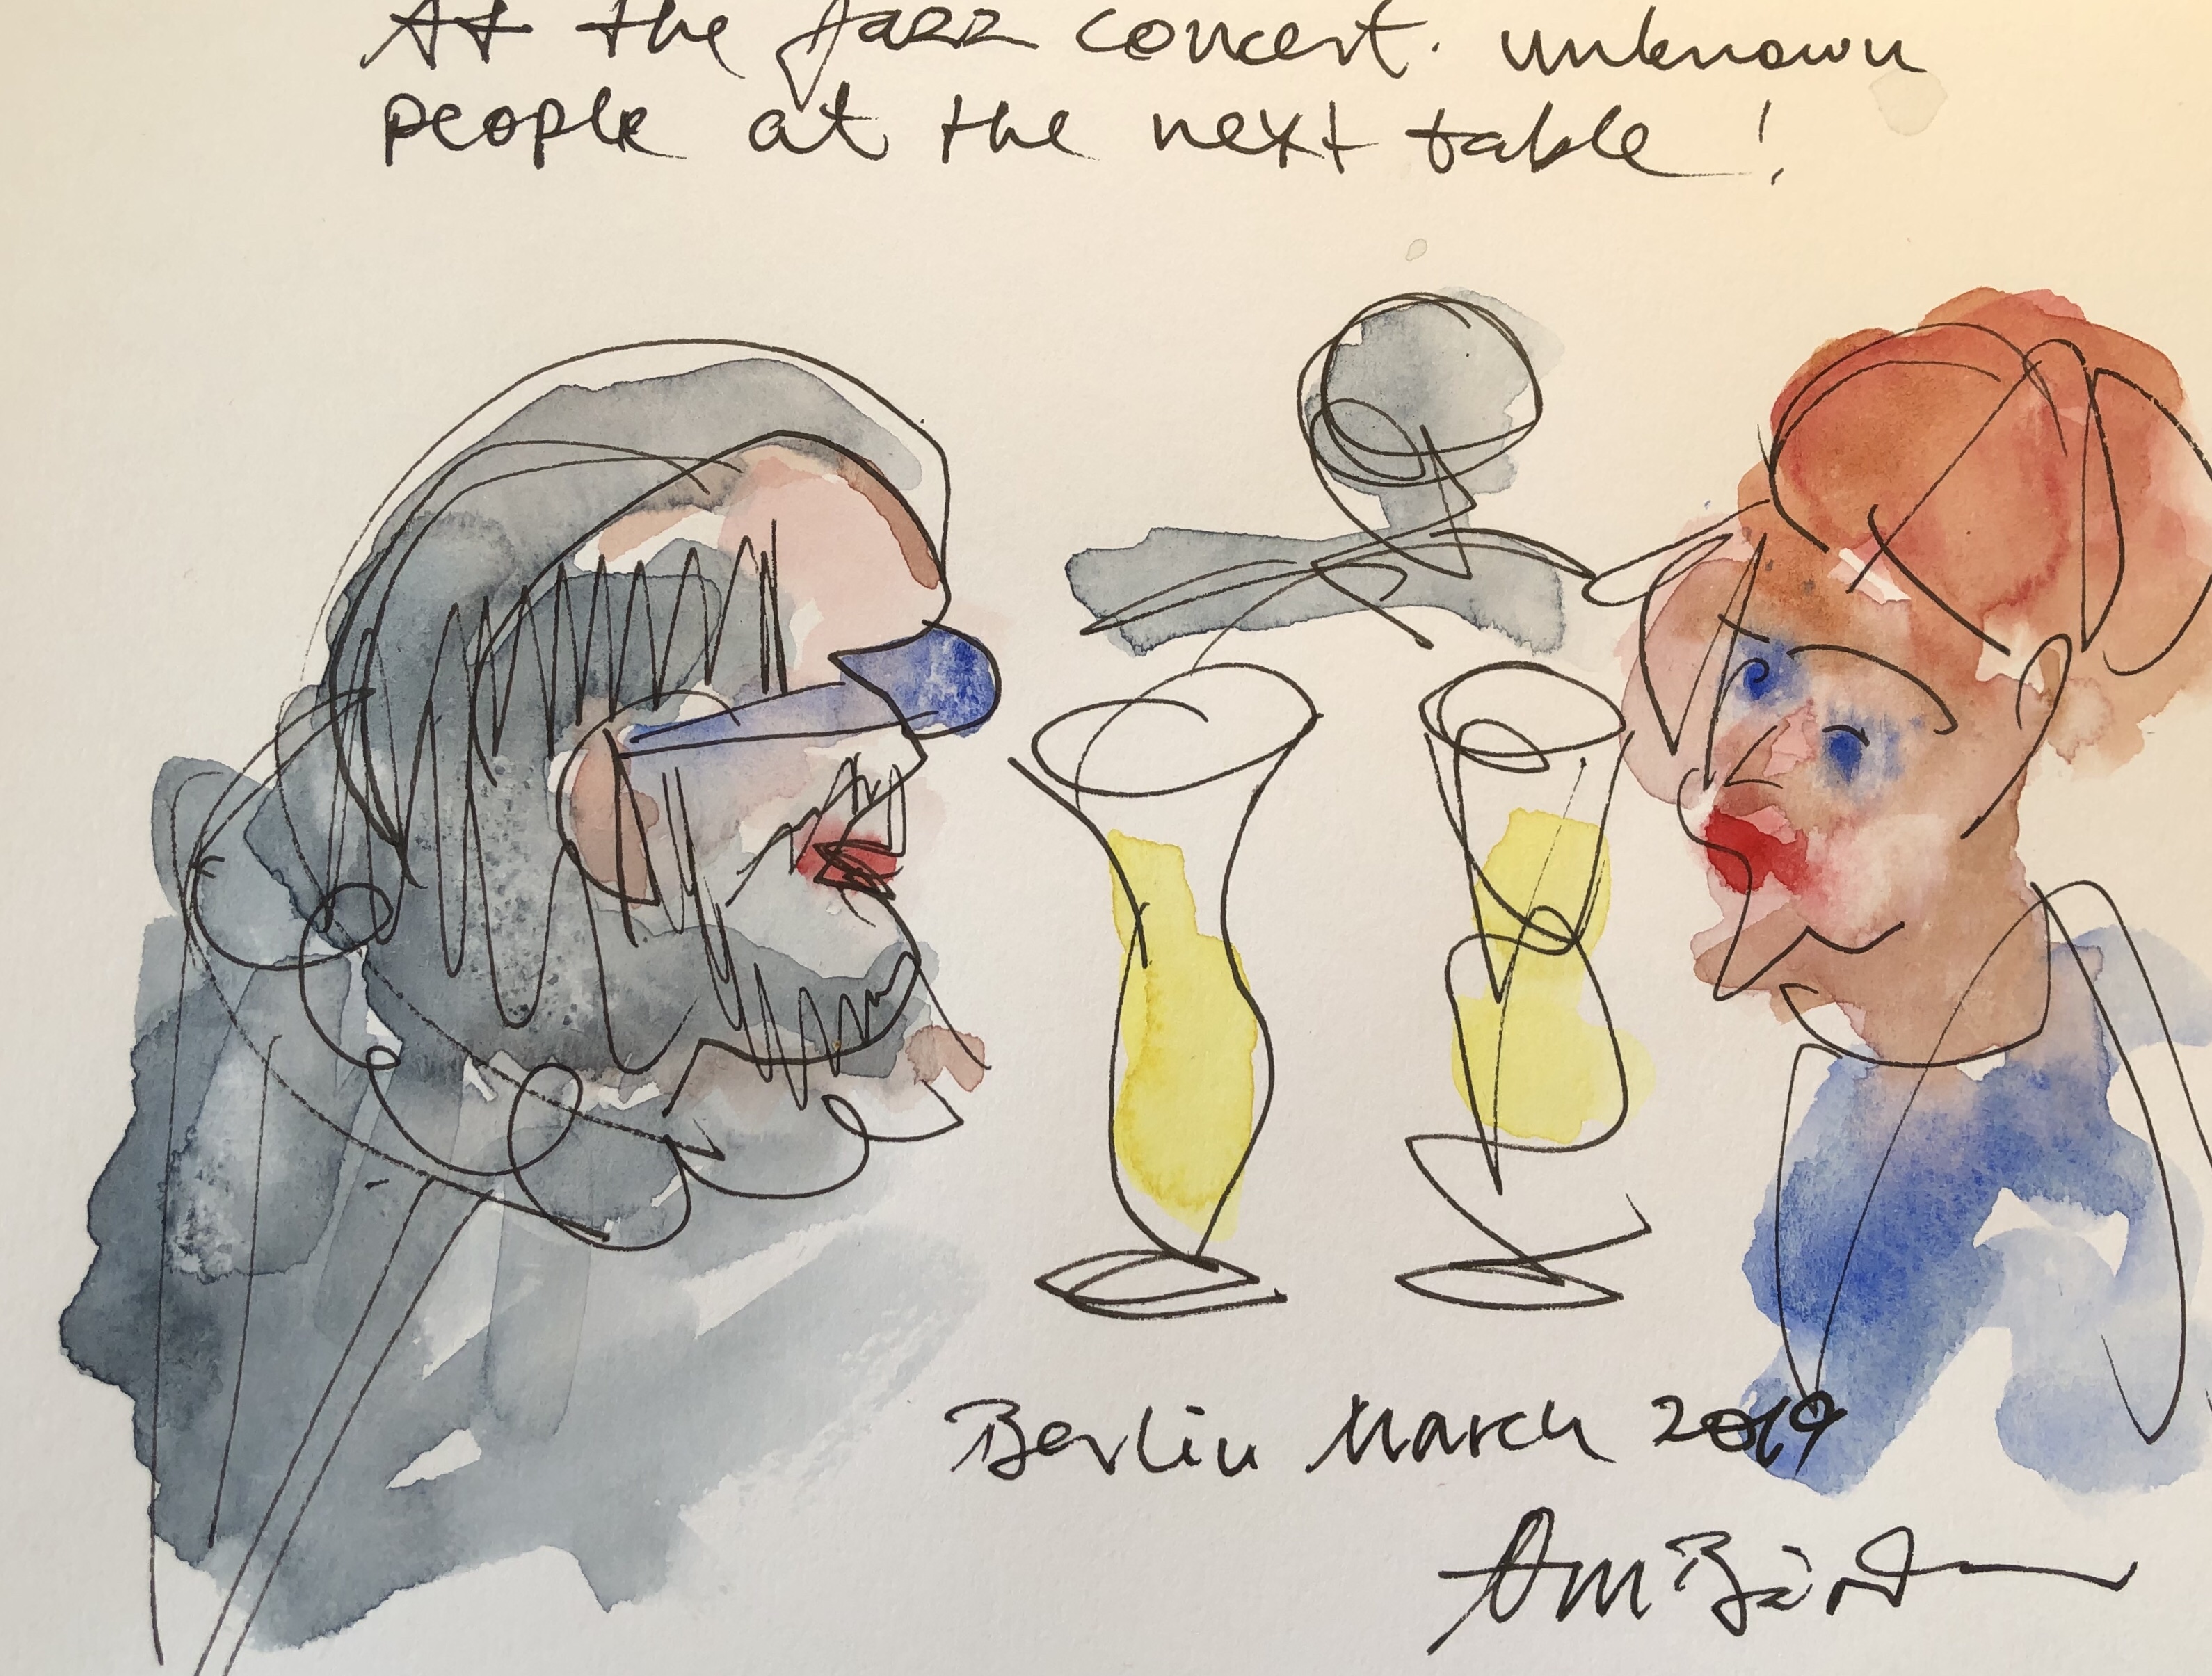 At the Jazz concert. unknown
people at the next table!
Berlin March 2019